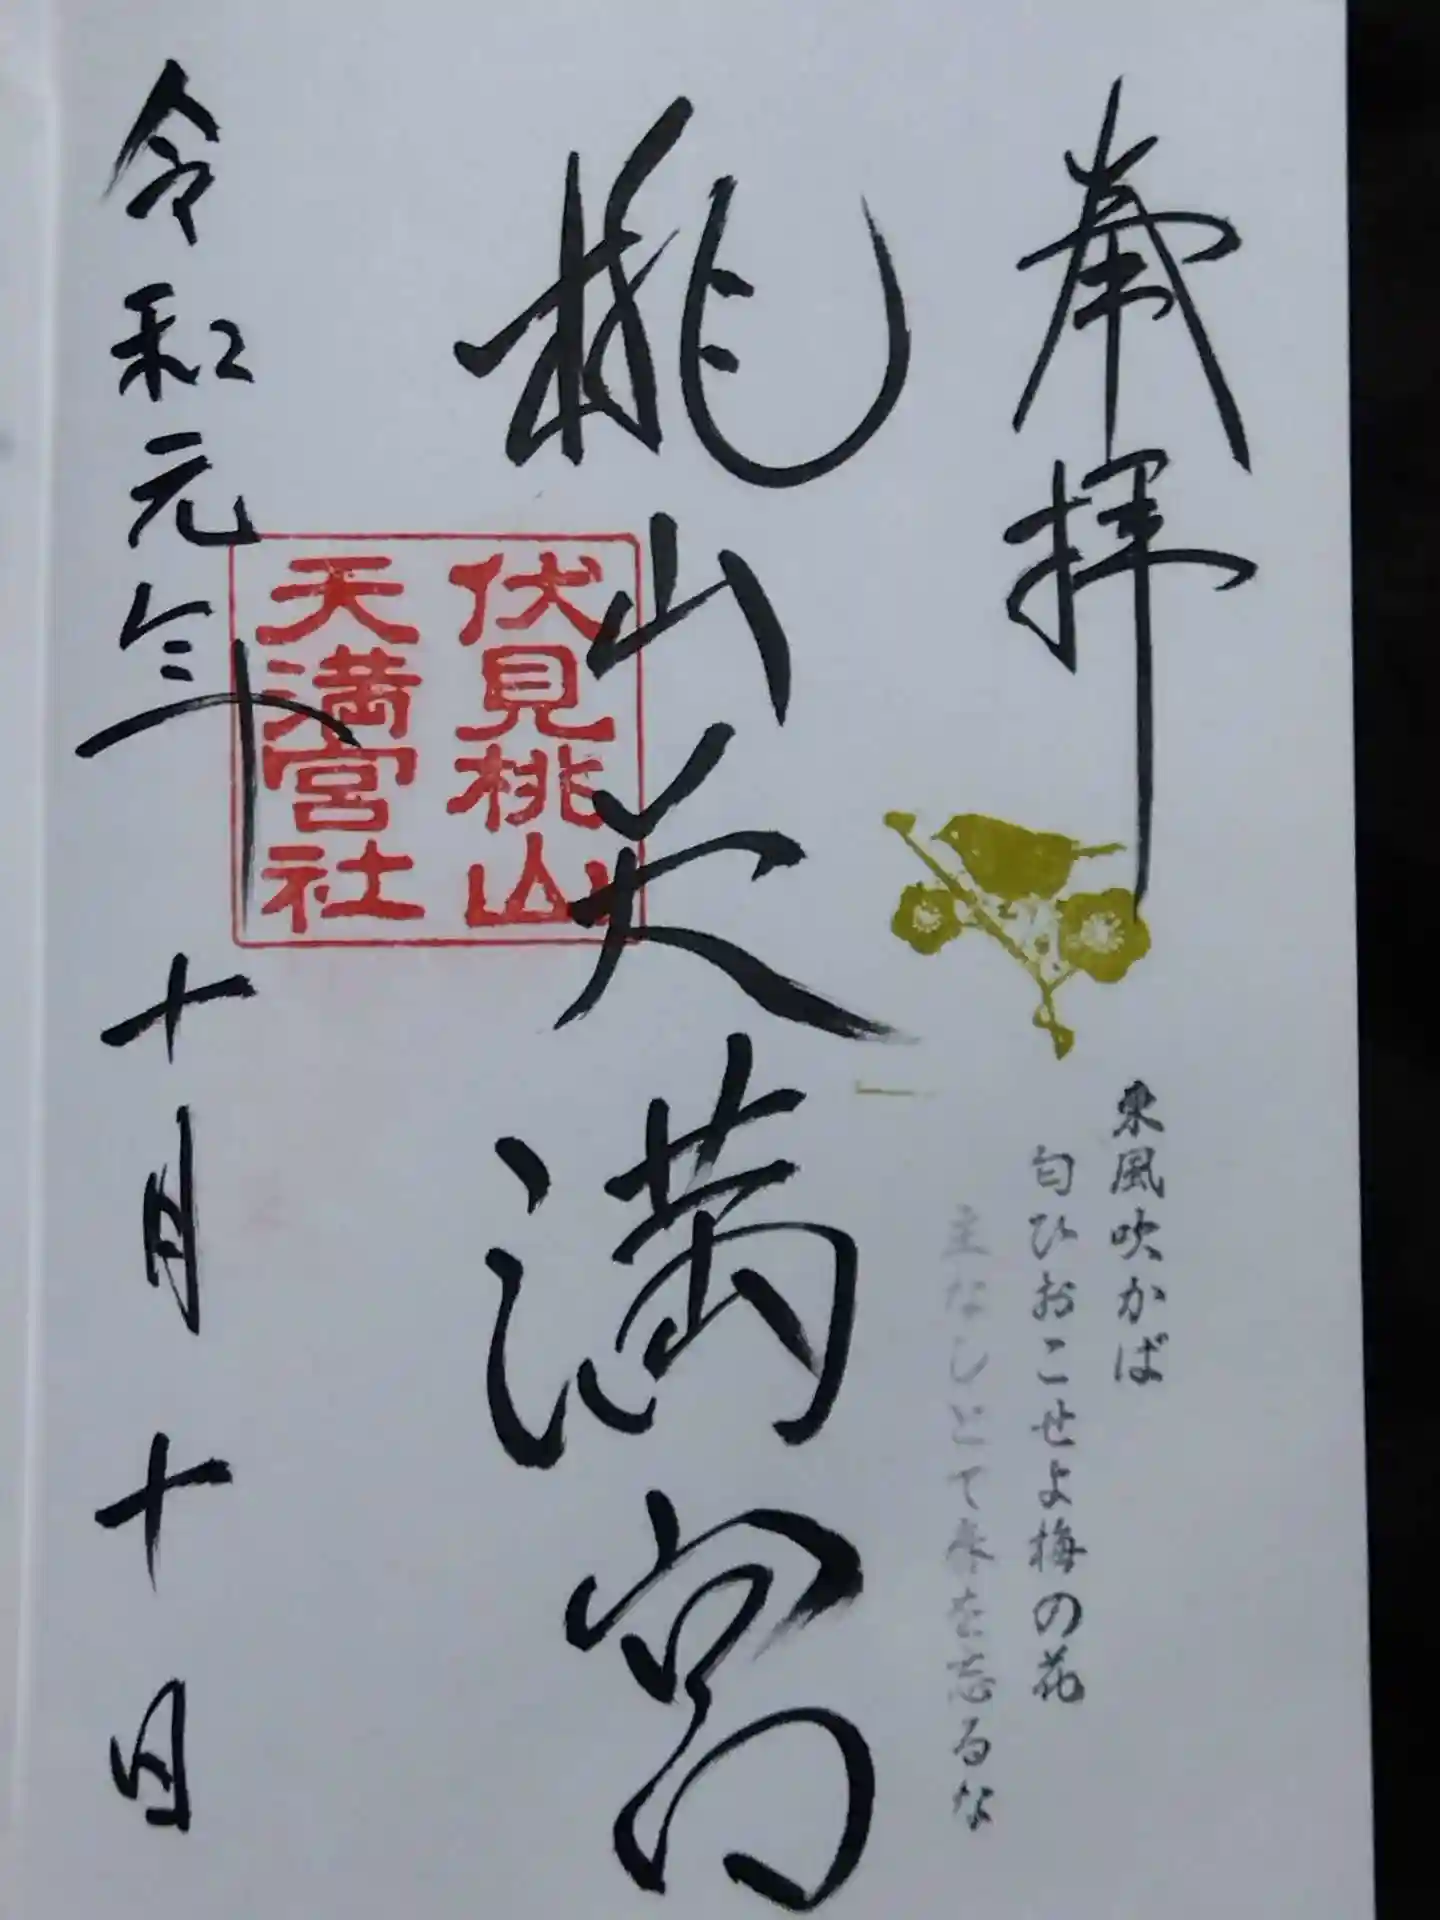 奉拝
東風吹かば
匂ひおこせよ梅の花
主なしとて春を忘るな
桃山天満宮
伏見桃山
天満宮社
令和元年十月十日